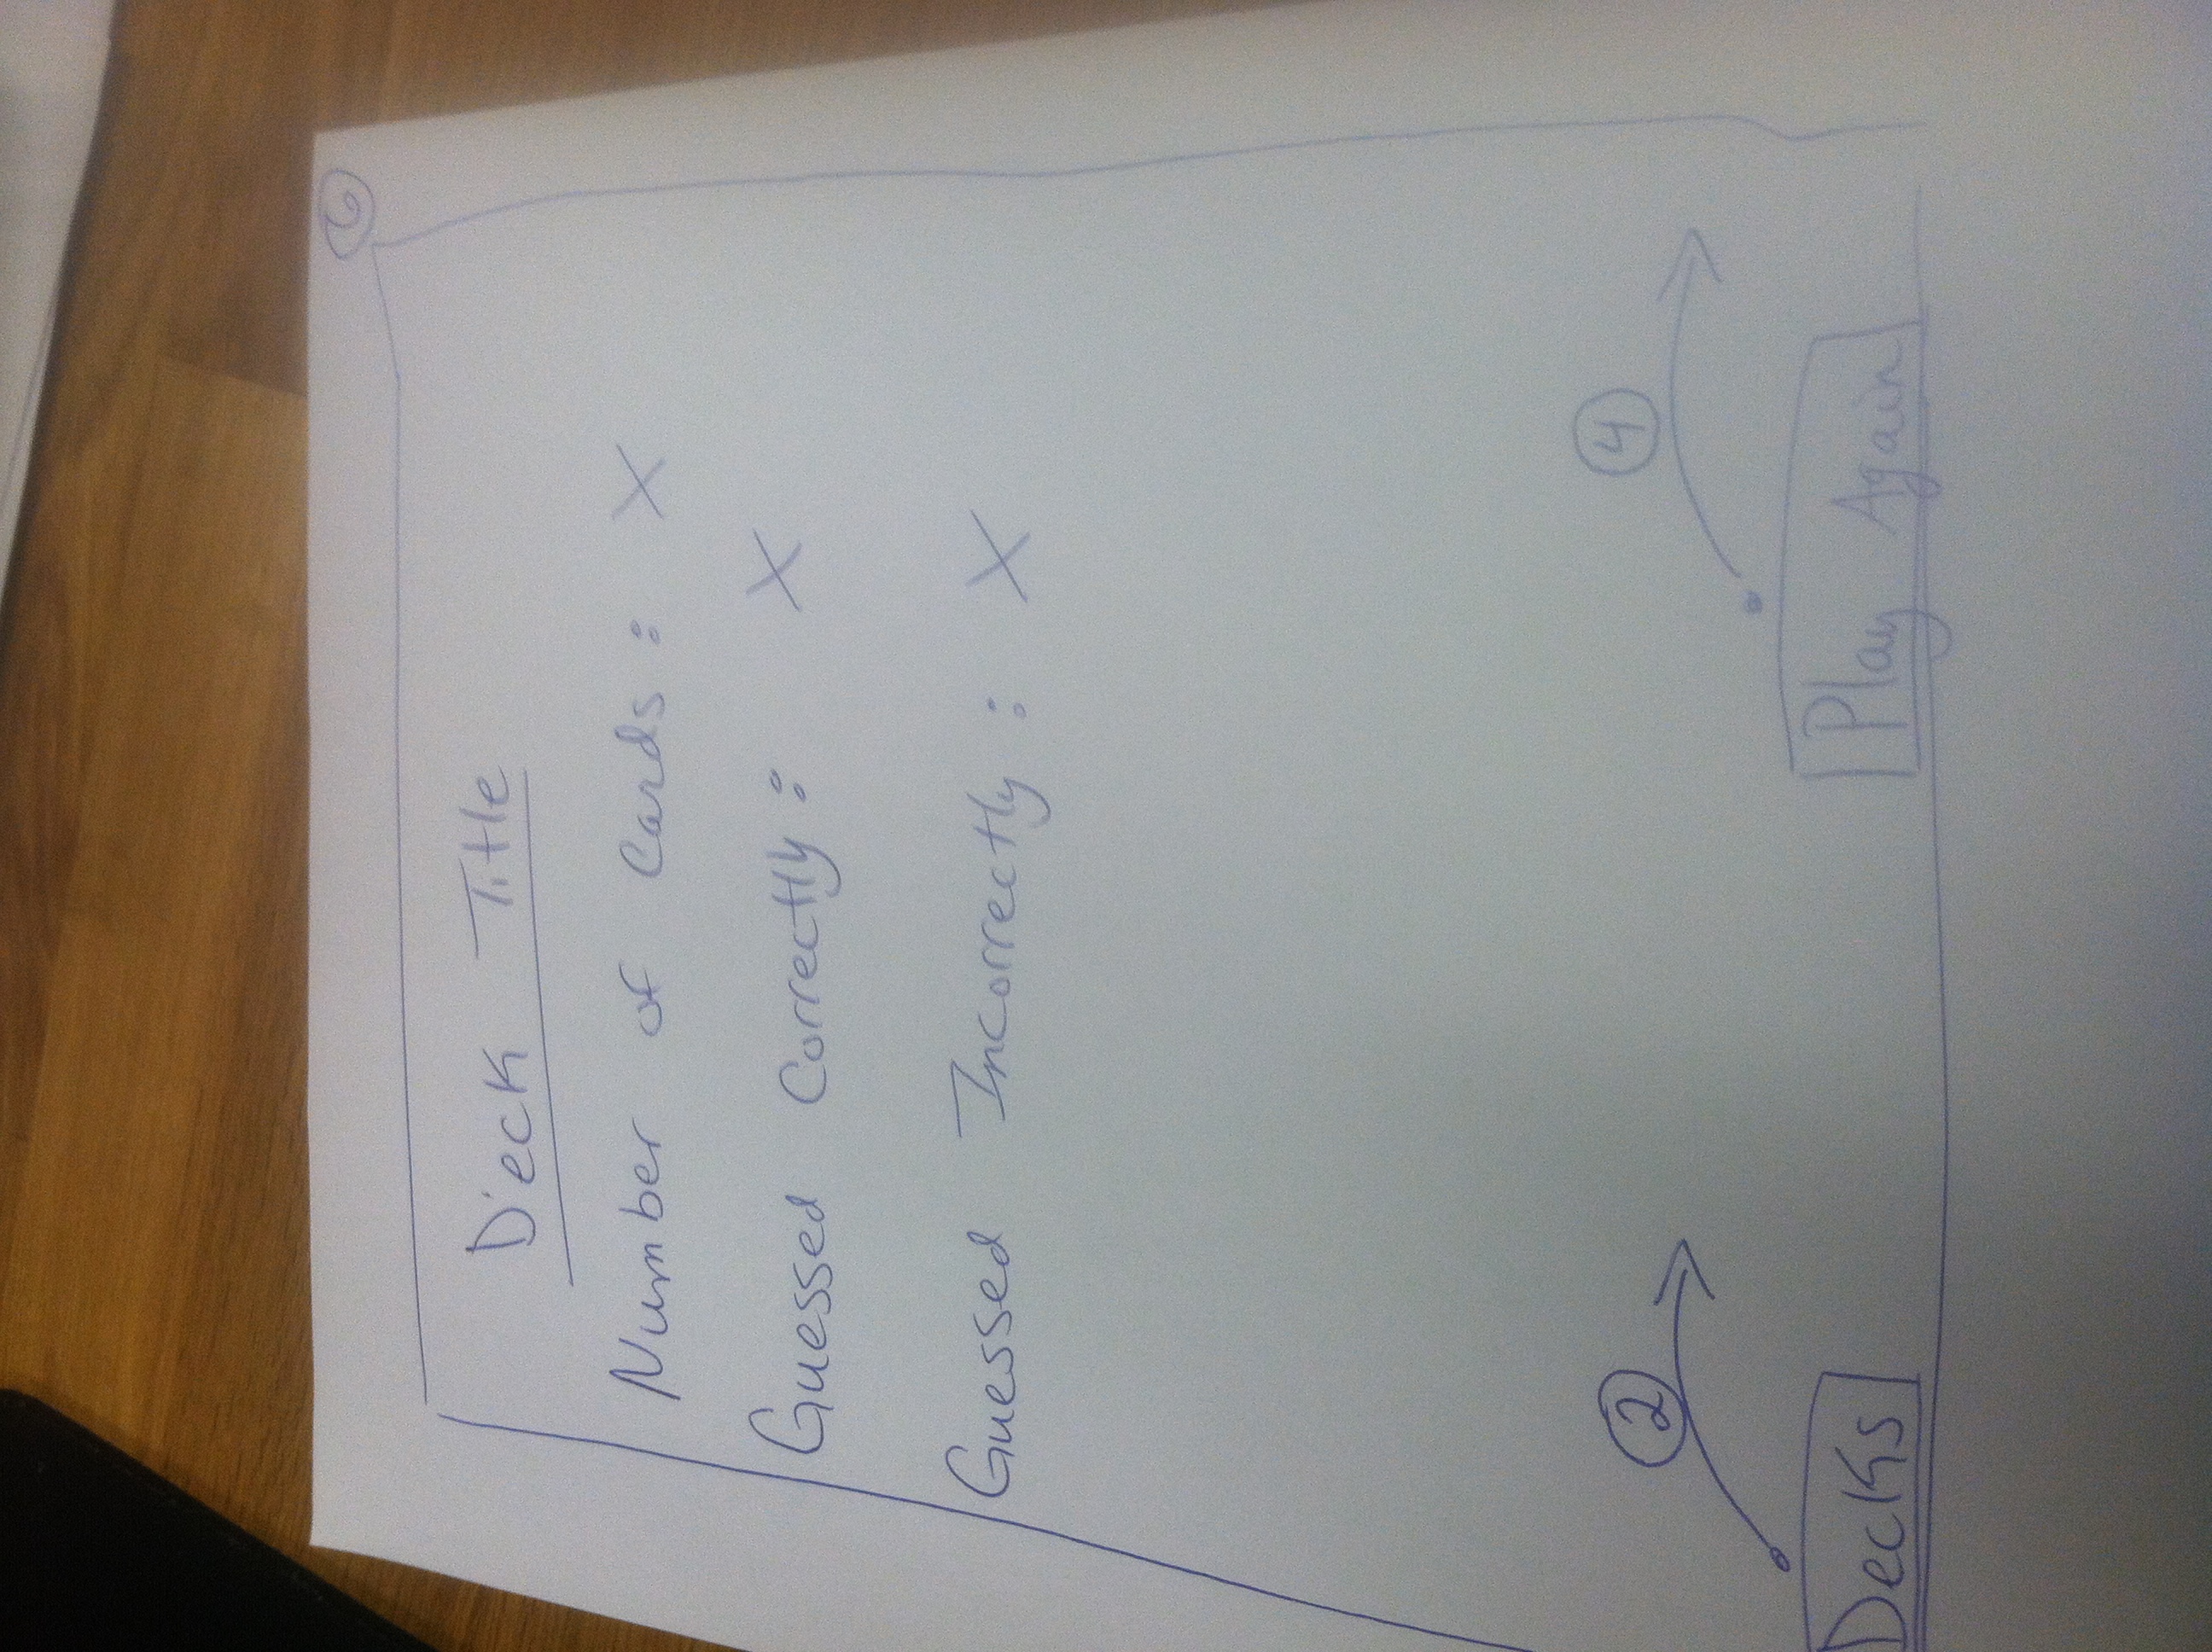 6
Deck Title
Number of Cards: X
Guessed Correctly: X
Guessed Incorrectly: X
2
4
Decks
Play Again